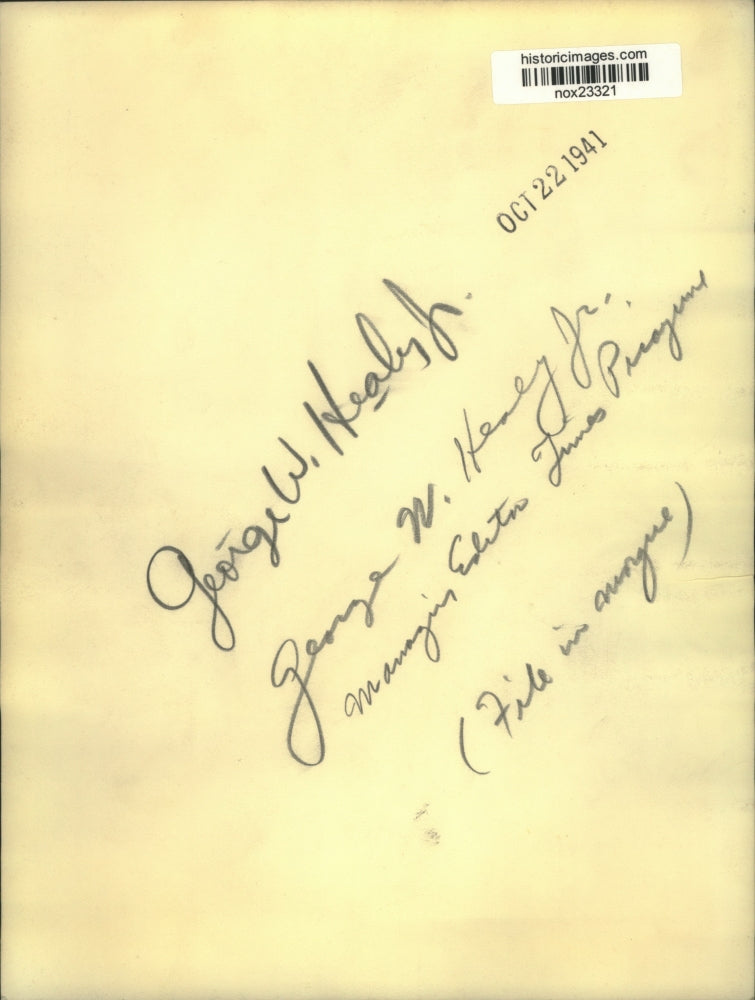 historicimages.com
nox23321
OCT 22 1941
George W. Healy Jr.
George W. Healy Jr.
Managing Editor Times Picayune
(File in morgue)